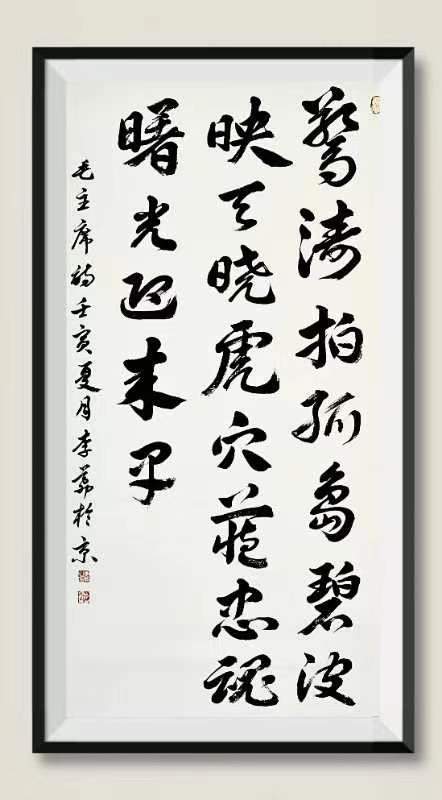 惊涛拍孤島碧波
映天晓虎穴藏忠魂
曙光迎来早
毛主席诗壬寅夏月李於京